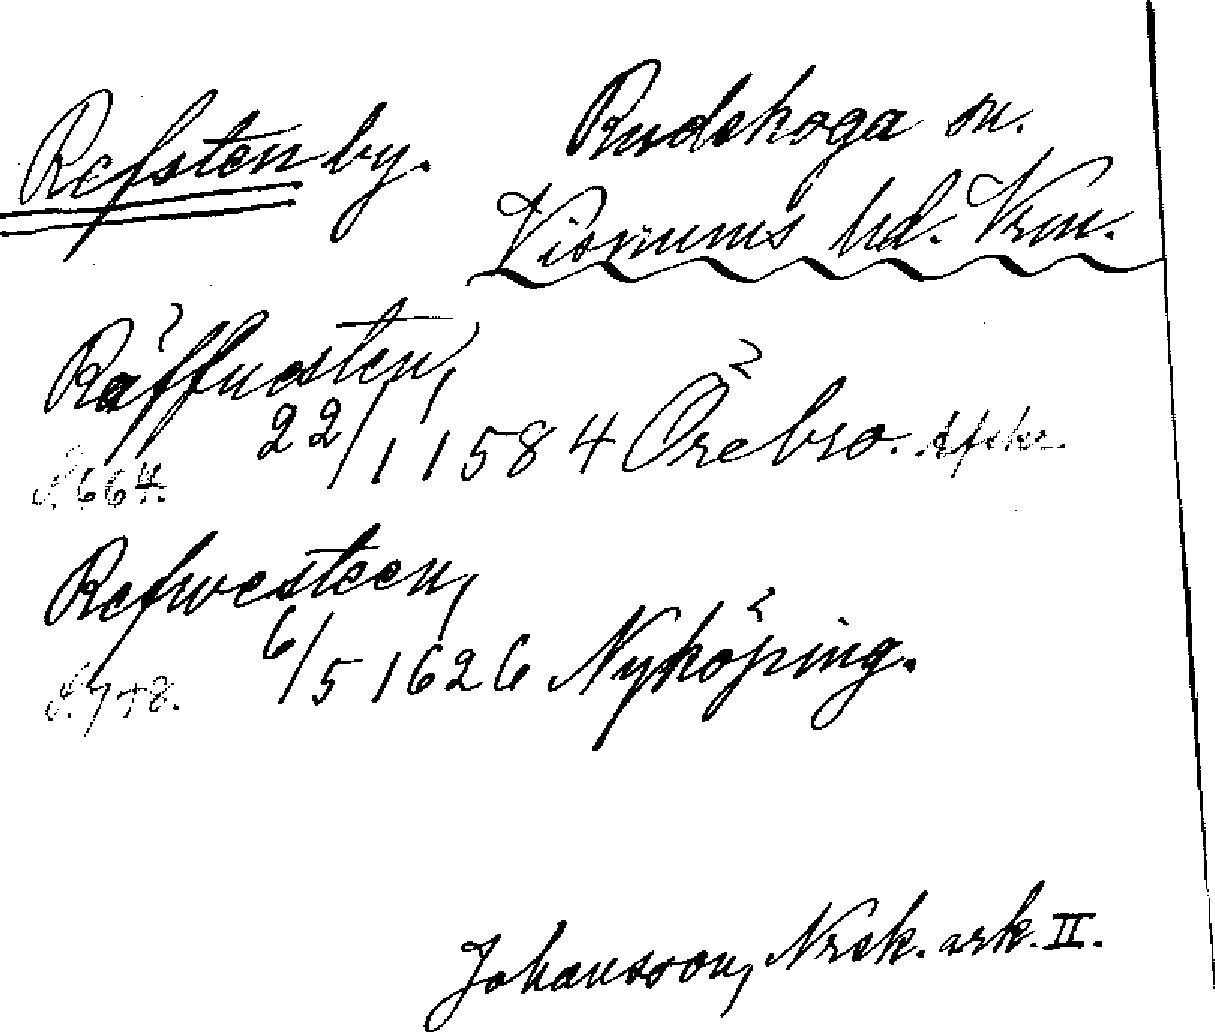 Refsten by.
Rudskoga sn.
Visnums hd. Vrm.
Räffuesten,
22/11 1584 Örebro. Afskr.
S. 664.
Refwesteen,
6/5 1626 Nyköping.
S. 7+8.
Johansson, Nrsk. ark. II.